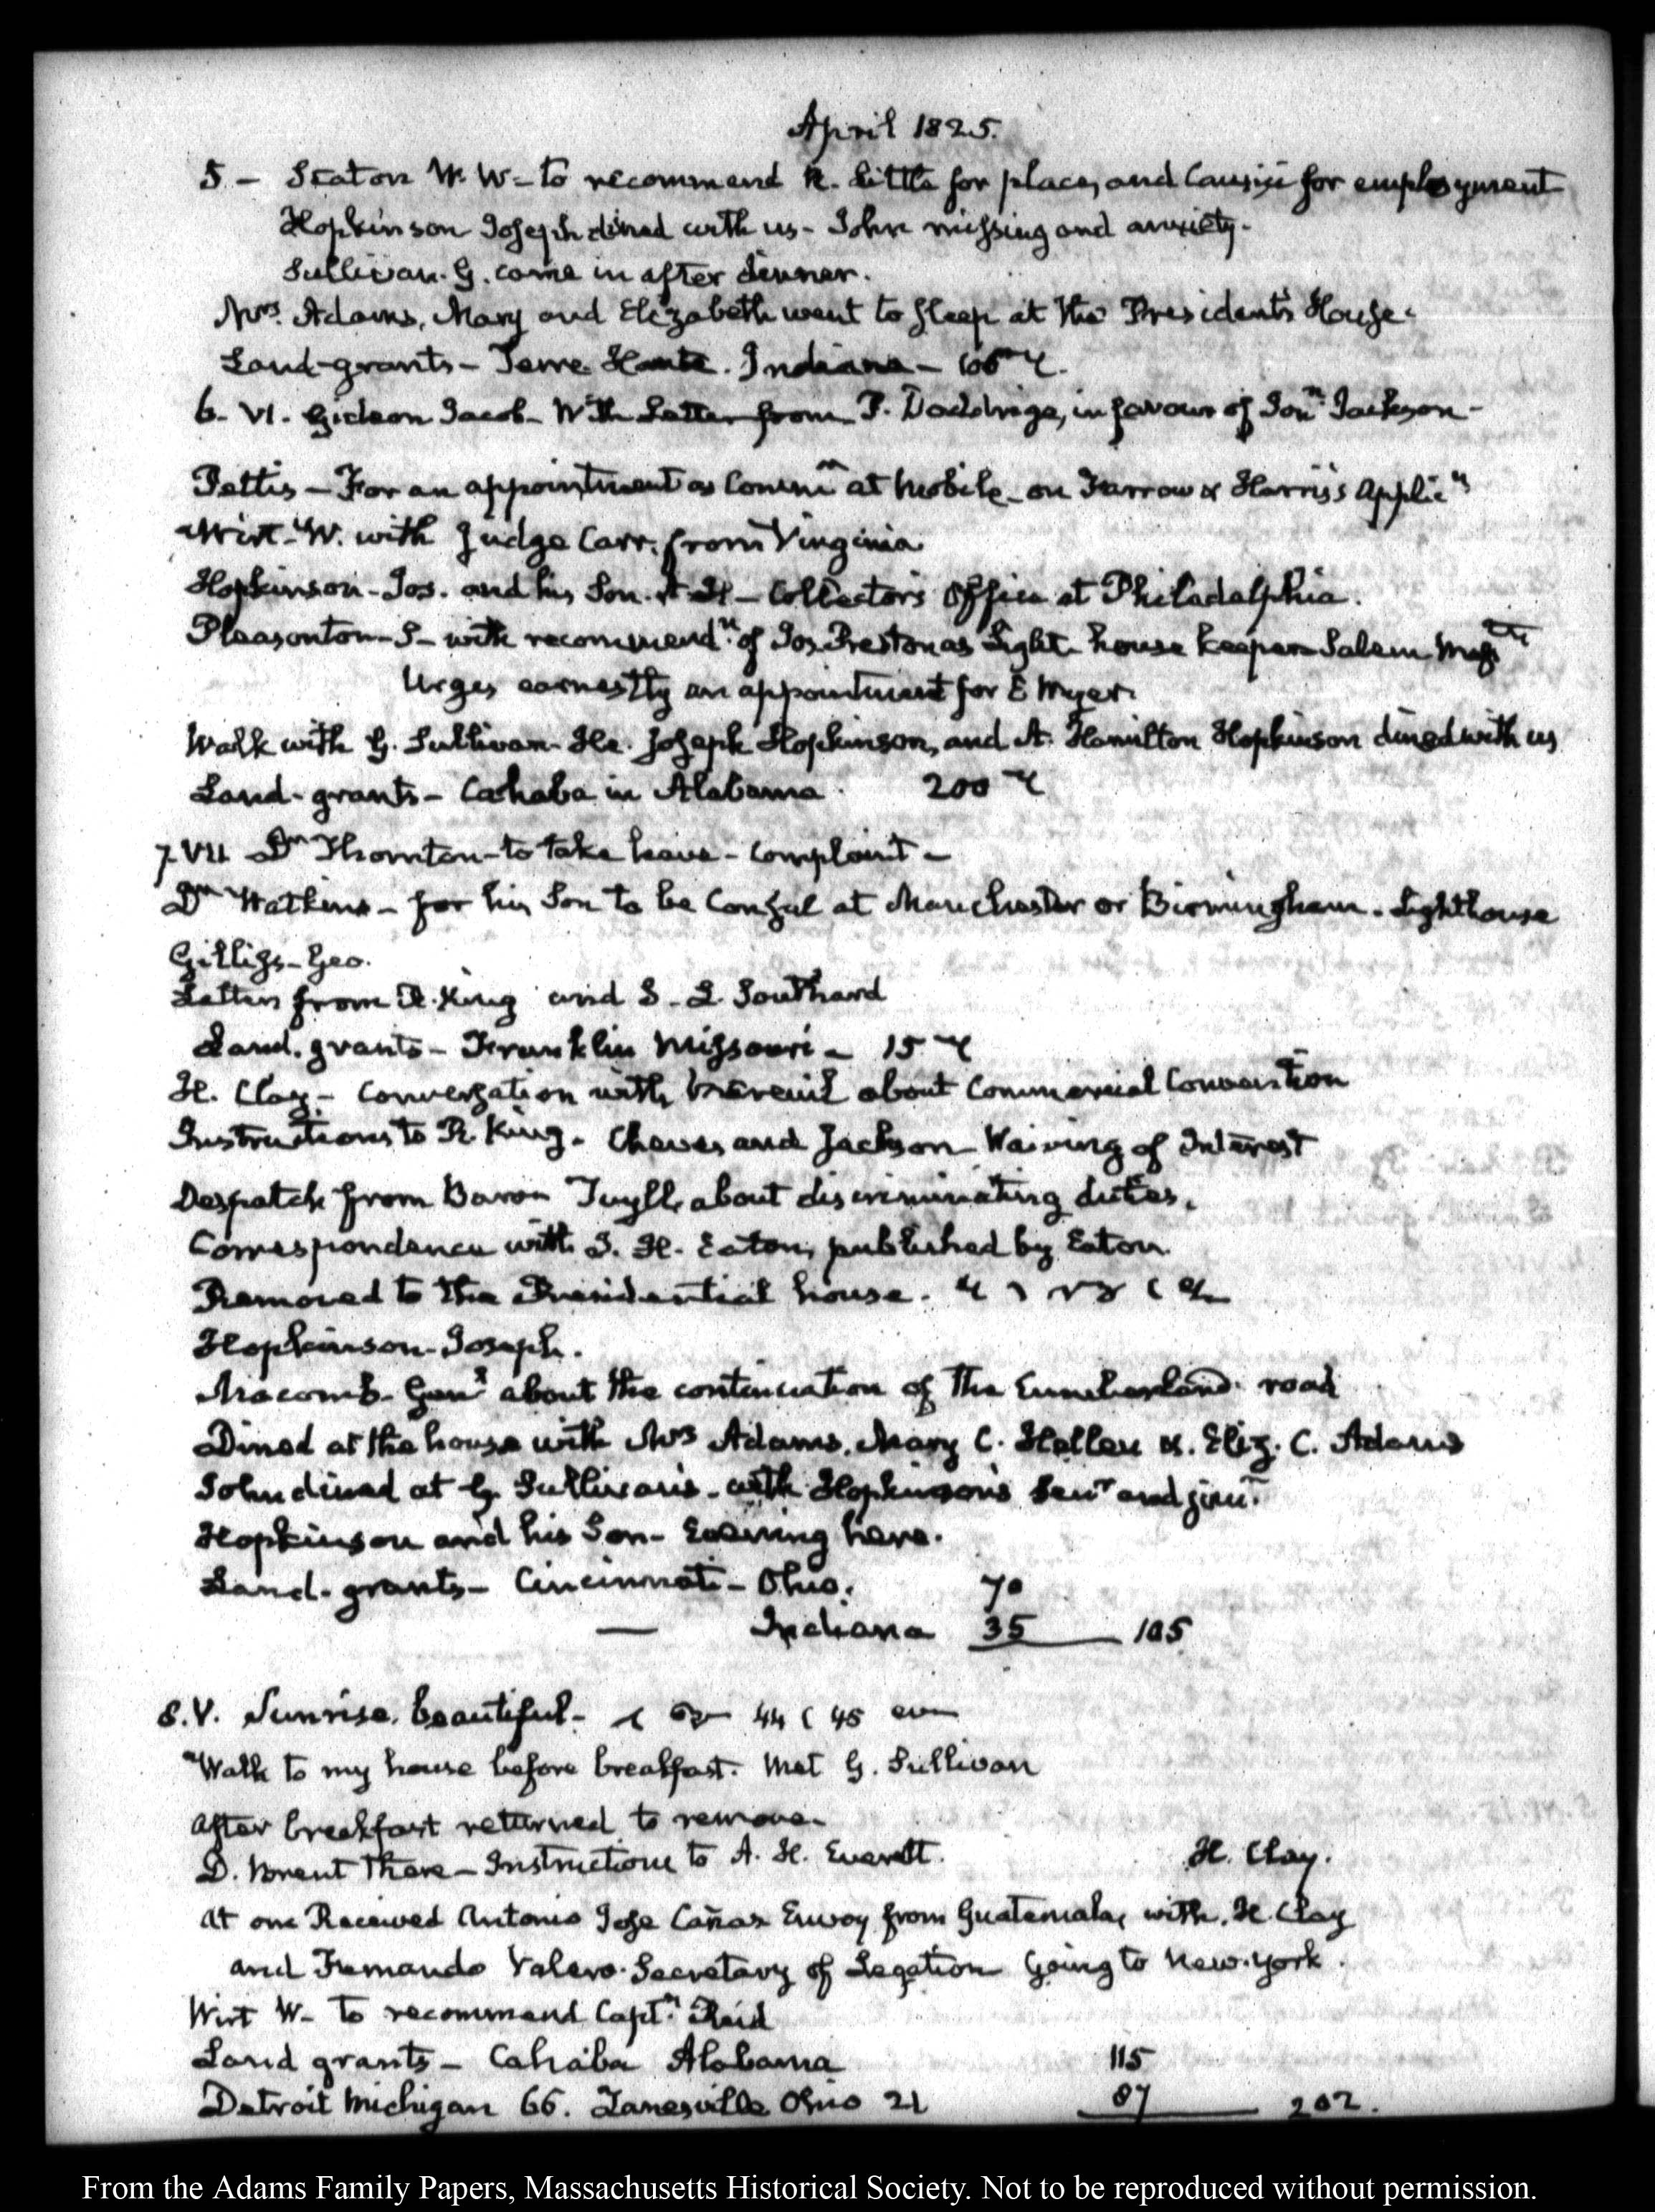 April 1825.
5 - Seaton W. W - to recommend R. Little for place, and Causici for employment
Hopkinson Joseph dined with us - John missing and anxiety -
Sullivan. G. came in after dinner.
Mrs. Adams, Mary and Elizabeth went to sleep at the President's House.
Land-grants - Terre Haute. Indiana -
6. VI. Gideon Jacob - With Letter from P. Doddridge, in favour of Jon.n Jackson -
Pettis - For an appointment as Comm.n at Mobile - on Farrow & Harris's Applic.n
Wirt - W. with Judge Carr, from Virginia
Hopkinson - Jos. and his Son. A H - Collector's Office at Philadelphia.
Pleasonton - S - with recommend.n of Jos. Preston as Light-house keeper Salem
Urges earnestly an appointment for E Myer.
Walk with G. Sullivan - He. Joseph Hopkinson, and A. Hamilton Hopkinson dined with us
Land-grants - Cahaba in Alabama. 200
7. VII Dr Thornton - to take leave - Complaint -
Dr Watkins - for his Son to be Consul at Manchester or Birmingham - Lighthouse
Gilliss - Geo.
Letters from R. King and S. L. Southard
Land-grants - Franklin Missouri - 15
H. Clay - Conversation with Mareuil about Commercial Convention
Instructions to R. King. Cheves and Jackson - Waiving of Interest
Despatch from Baron Tuyll, about discriminating duties.
Correspondence with J. H. Eaton, published by Eaton.
Removed to the Presidential house.
Hopkinson - Joseph.
Macomb - Gen.l about the continuation of the Cumberland road
Dined at the house with Mrs Adams, Mary C. Hellen &. Eliz. C. Adams
John dined at G. Sullivan's - with Hopkinson's Sen.r and jun.r
Hopkinson and his Son - Evening here.
Land-grants - Cincinnati - Ohio. 70
— Indiana 35 — 105
8. V. Sunrise, beautiful - 44 ( 45
Walk to my house before breakfast. Met G. Sullivan
After breakfast returned to remove.
D. Brent there - Instructions to A. H. Everett. H. Clay.
At one Received Antonio Jose Cañaz Envoy from Guatemala, with H. Clay
and Fernando Valero. Secretary of Legation Going to New-York.
Wirt W - to recommend Capt.n Reid
Land grants - Cahaba Alabama 115
Detroit Michigan 66. Zanesville Ohio 21 87 — 202.
From the Adams Family Papers, Massachusetts Historical Society. Not to be reproduced without permission.